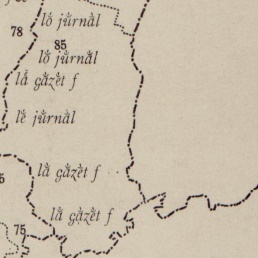 78
lŏ jŭrnăl
85
lŏ jŭrnăl
lă găzĕt f
lĕ jŭrnăl
lă găzĕt f
lă găzĕt f
75